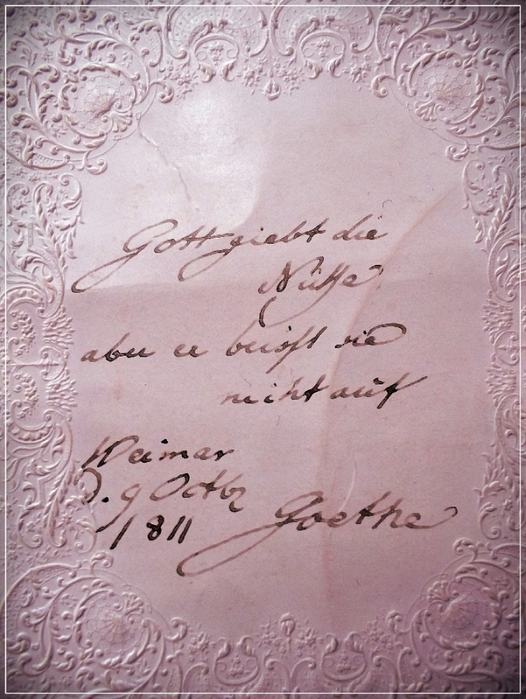 Gott giebt die
Nüsse
aber er beißt sie
nicht auf
Weimar
D. 9 Octbr
1811
Goethe